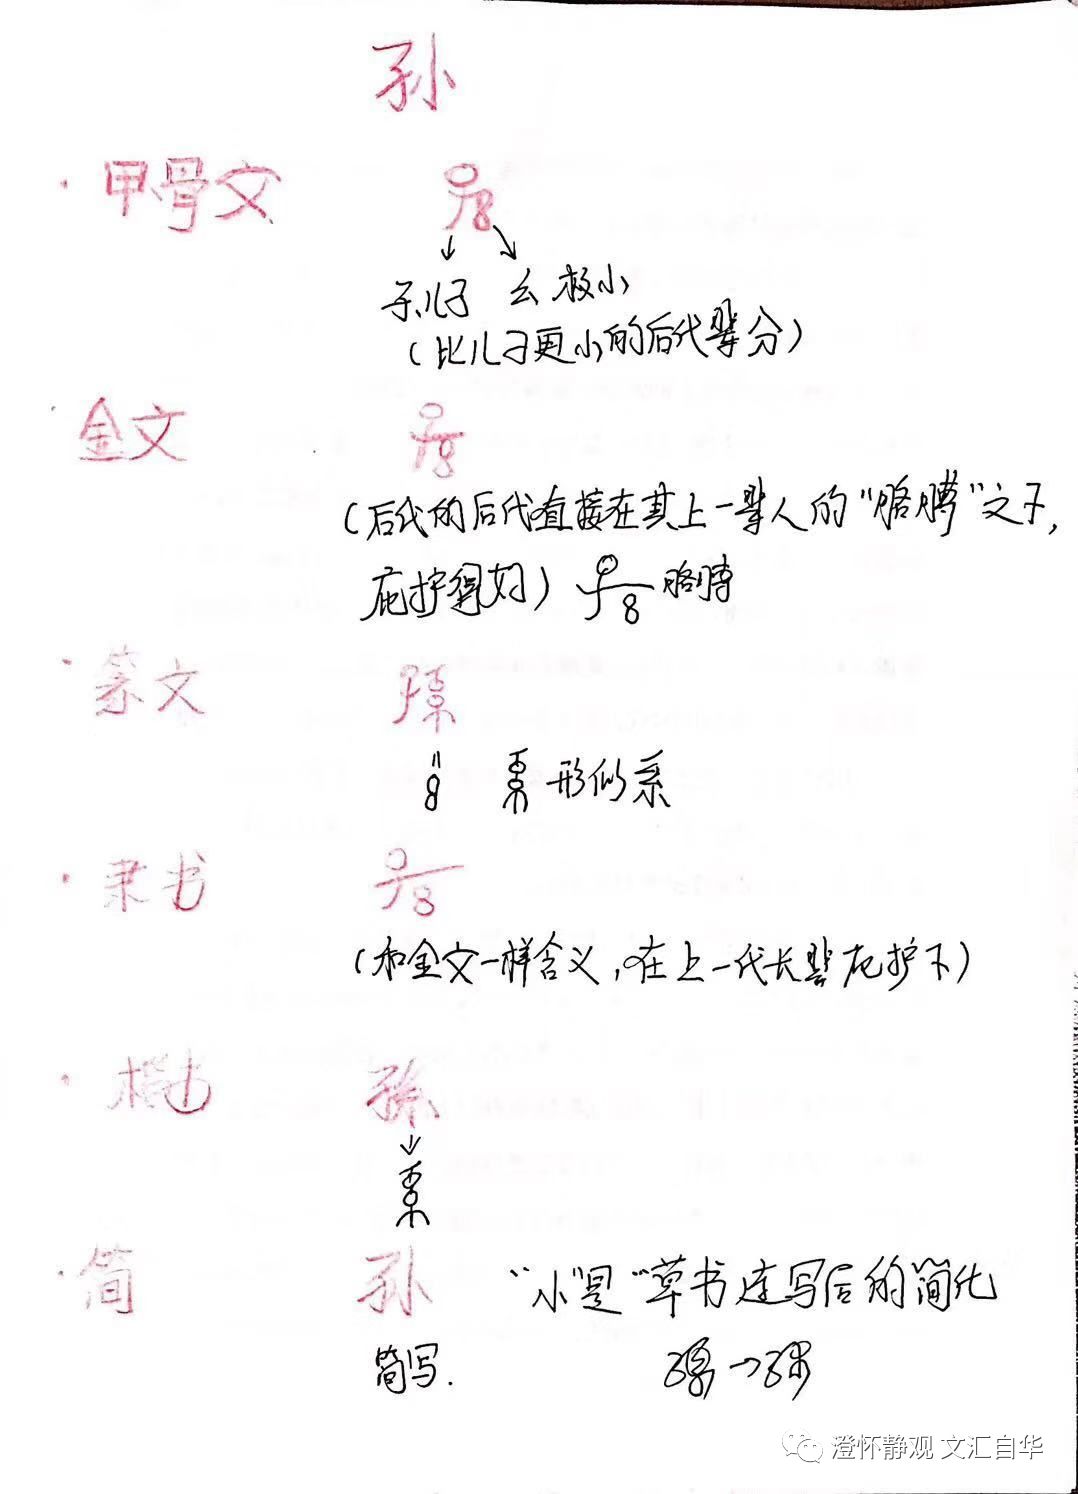 孙
·甲骨文
子儿子 幺 极小
(比儿子更小的后代辈分)
金文
(后代的后代直接在其上一辈人的"胳膊"之下,
庇护得好) 胳膊
·篆文
形似系
·隶书
(和金文一样含义,在上一代长辈庇护下)
·楷书 孫
·简 孙 "小"是"草书连写后的简化
简写. 孫→孙
澄怀静观 文汇自华